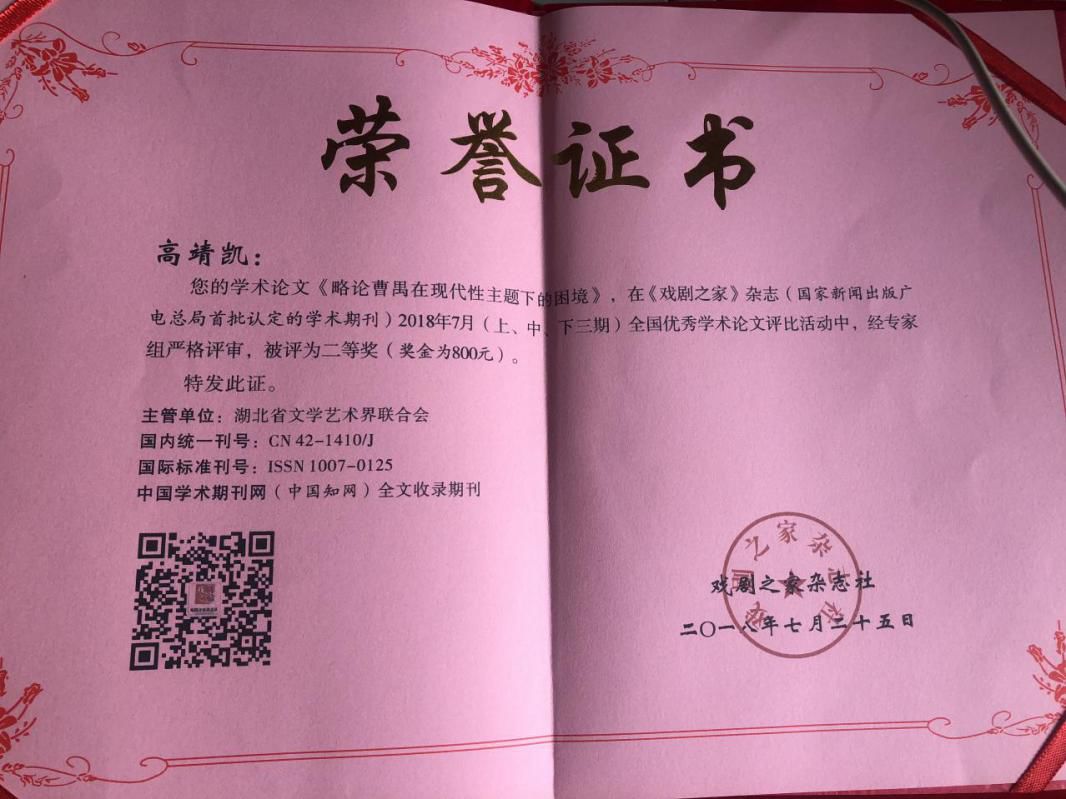 荣誉证书
高靖凯：
您的学术论文《略论曹禺在现代性主题下的困境》，在《戏剧之家》杂志（国家新闻出版广
电总局首批认定的学术期刊）2018年7月（上、中、下三期）全国优秀学术论文评比活动中，经专家
组严格评审，被评为二等奖（奖金为800元）。
特发此证。
主管单位：湖北省文学艺术界联合会
国内统一刊号：CN 42-1410/J
国际标准刊号：ISSN 1007-0125
中国学术期刊网（中国知网）全文收录期刊
戏剧之家杂志社
戏剧之家杂志社
二〇一八年七月二十五日